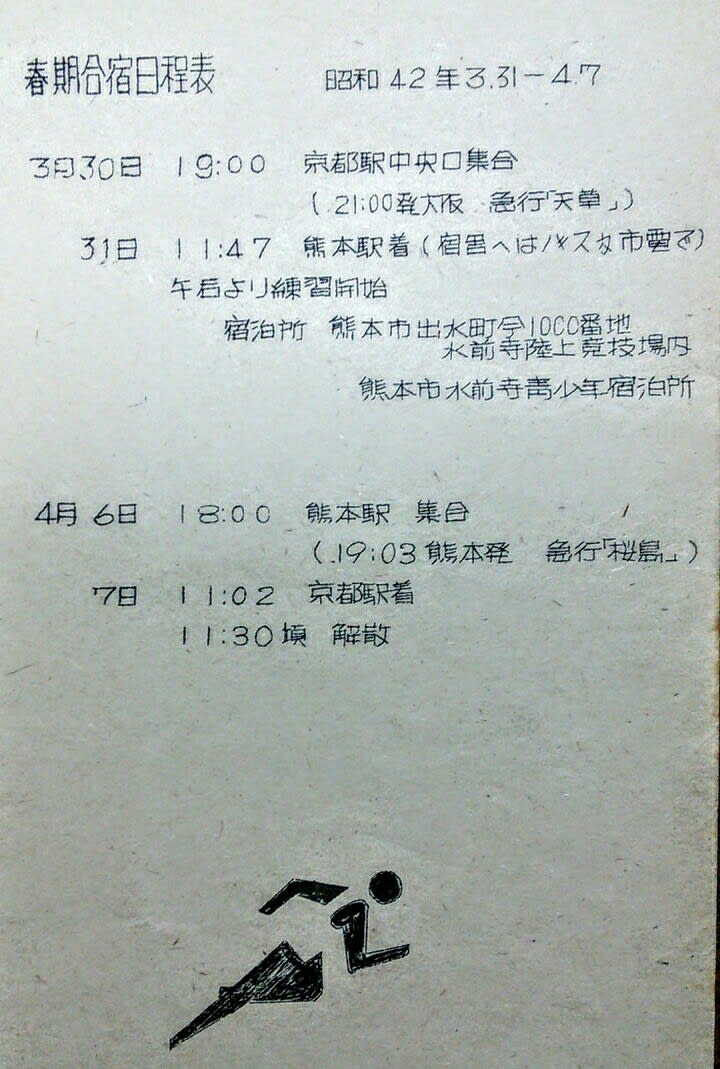 春期合宿日程表 昭和42年3.31-4.7
3月30日 19:00 京都駅中央口集合
(.21:00発大阪 急行「天草」)
31日 11:47 熊本駅着(宿舎へはバスか市電で)
午后より練習開始
宿泊所 熊本市出水町今1000番地
水前寺陸上競技場内
熊本市水前寺青少年宿泊所
4月6日 18:00 熊本駅 集合
(.19:03熊本発 急行「桜島」)
7日 11:02 京都駅着
11:30頃 解散